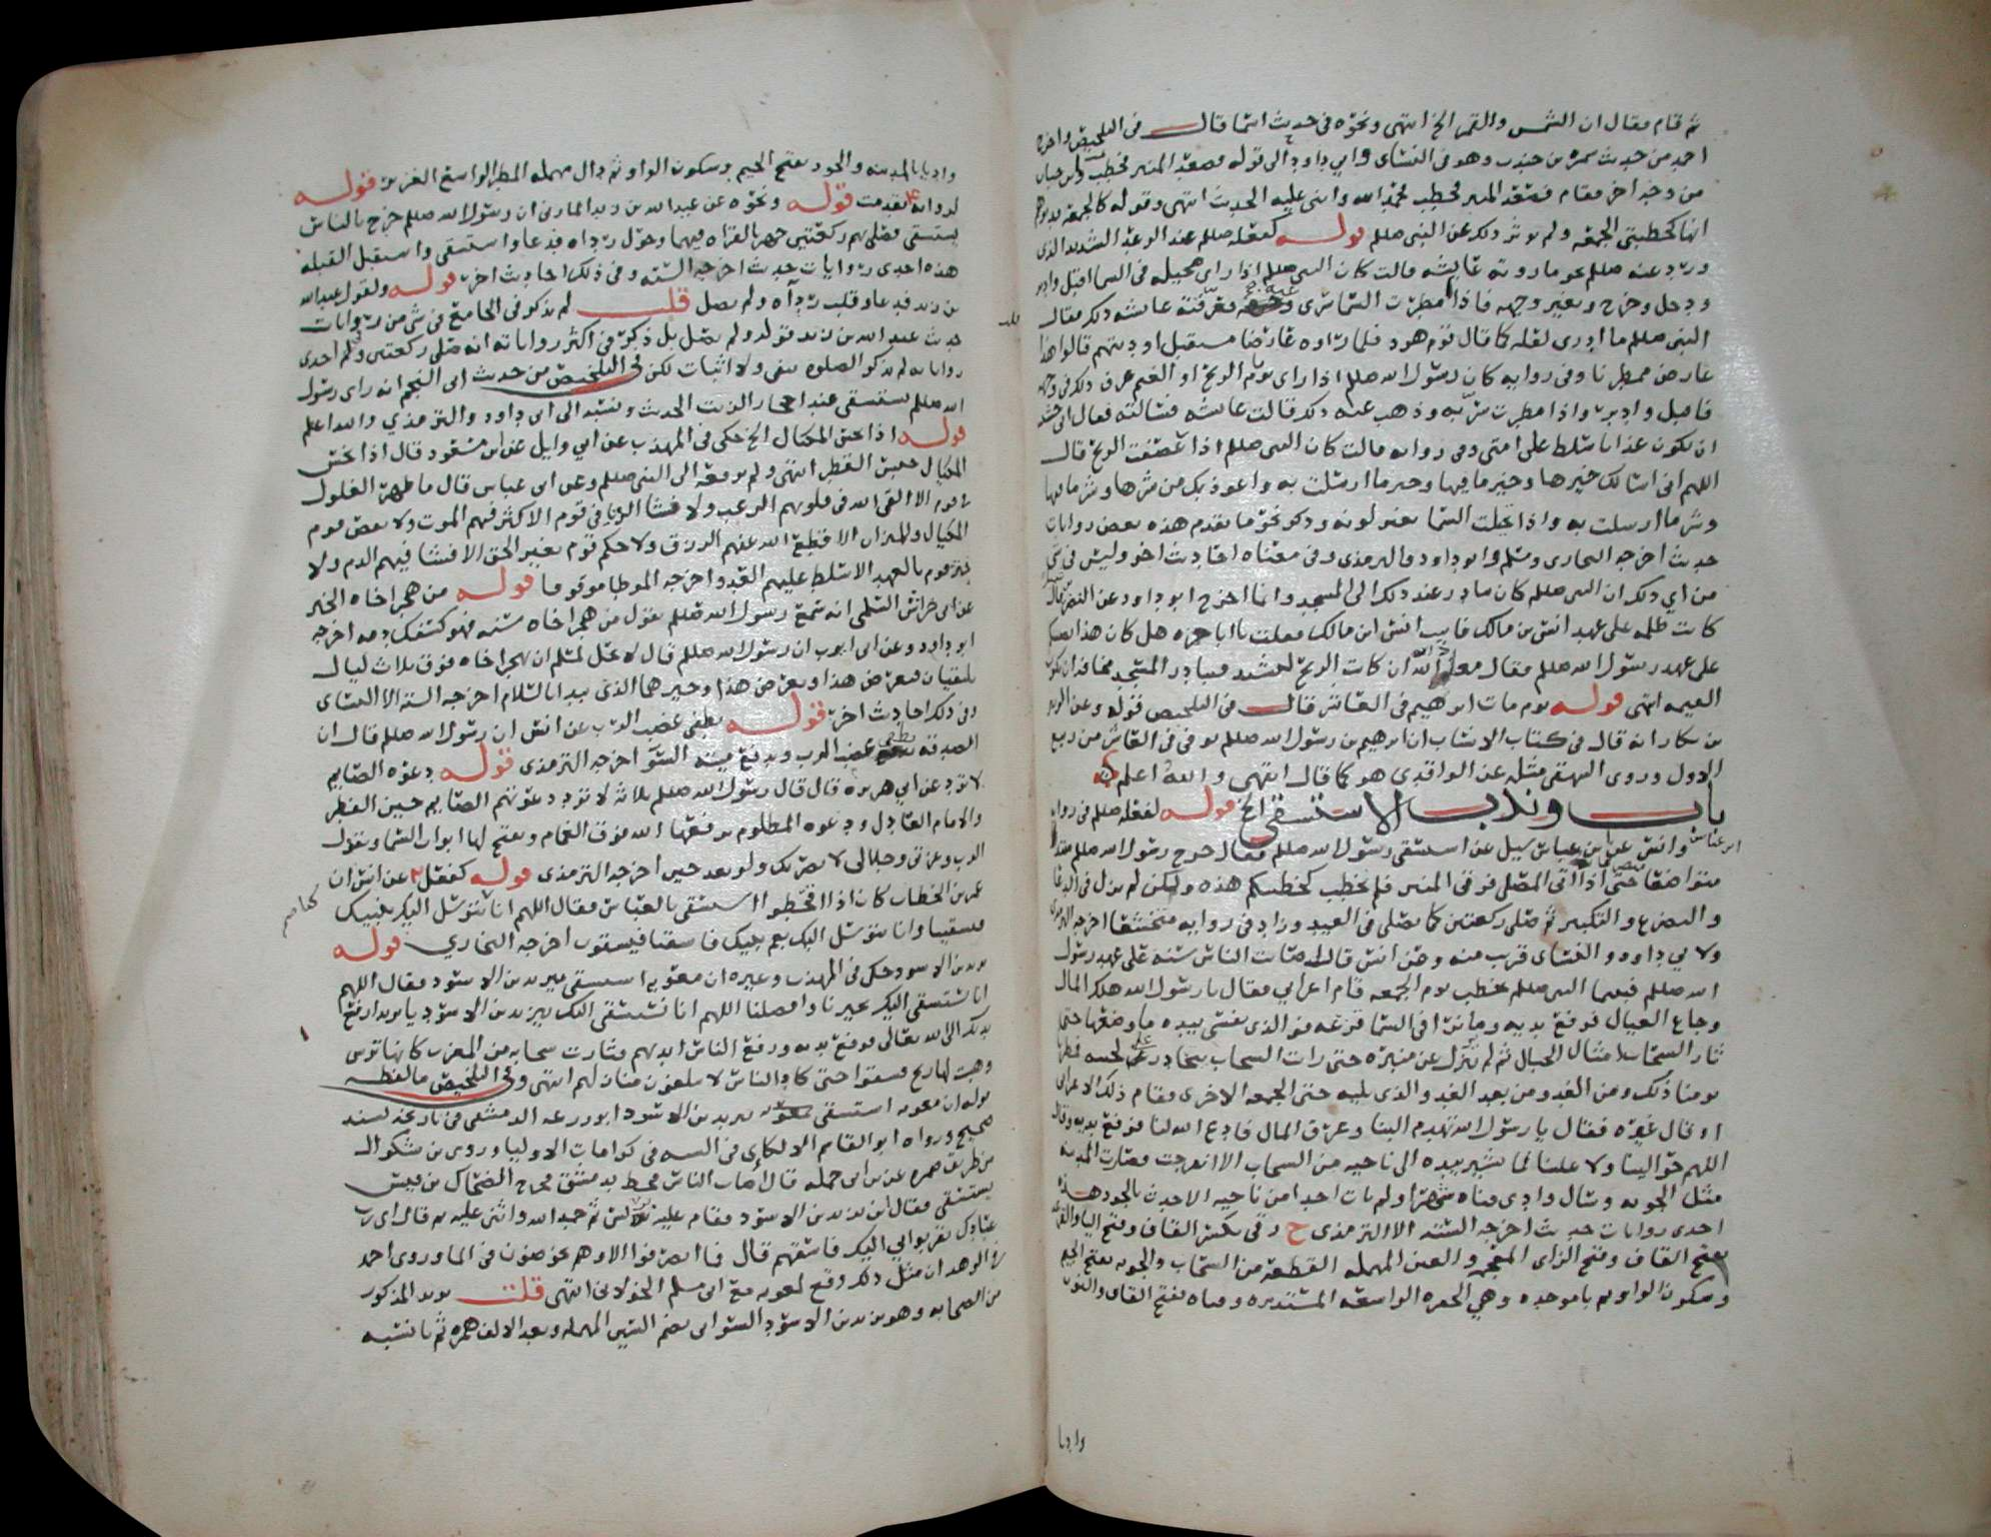 ثم قام فقال ان الشمس والقمر الخ انتهى ونحوه في حديث اسما قال في التلخيص واخرج
احمد من حديث سمره بن جندب وهو في النساى وابي داود الى قوله فصعد المنبر فخطب ولابن حبان
من وجه اخر فقام فصعد المنبر فخطب فحمد الله واثنى عليه الحديث انتهى وقوله كالجمعه
انها كخطبتي الجمعه ولم يوثر ذلك عن النبي صللم قوله كفعله صللم عند الوعد الشديد الذي
ورد عنه صللم نحو ما روته عايشه قالت كان النبي صللم اذا راى مخيله في السما اقبل وادبر
ودخل وخرج وتغير وجهه فاذا امطرت السما سرى عنه فعرفته عايشه ذلك فقال
النبي صللم ما ادري لعله كما قال قوم هود فلما راوه عارضا مستقبل اوديتهم قالوا هذا
عارض ممطرنا وفي روايه كان رسول الله صللم اذا راى يوم الريح او الغيم عرف ذلك في وجهه
فاقبل وادبر واذا مطرت سر به وذهب عنه ذلك قالت عايشه فسالته فقال اني خشيت
ان يكون عذابا سلط على امتي وفي روايه قالت كان النبي صللم اذا عصفت الريح قال
اللهم اني اسالك خيرها وخير ما فيها وخير ما ارسلت به واعوذ بك من شرها وشر ما فيها
وشر ما ارسلت به واذا تخيلت السما تغير لونه وذكر نحو ما تقدم هذه بعض روايات
حديث اخرجه البخارى ومسلم وابو داود والترمذى وفي معناه احاديث اخر وليس في شي
من اي ذلك ان النبي صللم كان يبادر عند ذلك الى المسجد وانما اخرج ابو داود عن النضر قال
كانت ظلمه على عهد انس بن مالك فاتيت انس ابن مالك فقلت يا ابا حمزه هل كان هذا يصيبكم
على عهد رسول الله صللم فقال معاذ الله ان كانت الريح لتشتد فيبادر المسجد مخافه ان تكون
القيمه انتهى قوله يوم مات ابرهيم في العاشر قال في التلخيص قوله وعن الزبير
بن بكار انه قال في كتاب الانساب ان ابرهيم بن رسول الله صللم توفي في العاشر من ربيع
الاول وروى البيهقي مثله عن الواقدي هو كما قال انتهى والله اعلم
باب وندب الاستسقى الخ قوله لفعله صللم في روايه
ابن عباس وانس عن ابن عباس سيل عن استسقى رسول الله صللم فقال خرج رسول الله صللم متبذلا
متواضعا متضرعا حتى اذا اتى المصلى فرقى المنبر فلم يخطب كخطبكم هذه ولكن لم يزل في الدعا
والتضرع والتكبير ثم صلى ركعتين كما يصلى في العيد وزاد في روايه متخشعا اخرجه الترمذى
ولابي داود والنساى قريب منه وعن انس قال اصابت الناس سنه على عهد رسول
الله صللم فبينما النبي صللم يخطب يوم الجمعه قام اعرابي فقال يا رسول الله هلك المال
وجاع العيال فرفع يديه وما نرا في السما قزعه فو الذي نفسى بيده ما وضعها حتى
ثار السحاب امثال الجبال ثم لم ينزل عن منبره حتى رات السحاب يتحادر على لحيته فمطرنا
يومنا ذلك ومن الغد ومن بعد الغد والذي يليه حتى الجمعه الاخرى فقام ذلك الاعرابى
او قال غيره فقال يا رسول الله تهدم البنا وغرق المال فادع الله لنا فرفع يديه وقال
اللهم حوالينا ولا علينا فما يشير بيده الى ناحيه من السحاب الا انفرجت وصارت المدينه
مثل الجوبه وسال وادي قناه شهرا ولم يات احد من ناحيه الا حدث بالجود هذه
احدى روايات حديث اخرجه السته الا الترمذى ح رقى بكسر القاف وفتح اليا والقزعه
بفتح القاف وفتح الزاى المعجمه والعين المهمله القطعه من السحاب والجوبه بفتح الجيم
وسكون الواو ثم با موحده وهي الحفره الواسعه المستديره وقناه بفتح القاف والنون
وادبا
وادبا بالمدينه والجود بفتح الجيم وسكون الواو ثم دال مهمله المطر الواسع الغزير قوله
لروايه تقدمت قوله ونحوه عن عبد الله بن زيد المازنى ان رسول الله صللم خرج بالناس
يستسقى فصلى بهم ركعتين جهر بالقراه فيهما وحول رداه فدعا واستسقى واستقبل القبله
هذه احدى روايات حديث اخرجه السته وفي ذلك احاديث اخر قوله ولقول عبد الله
بن زيد فدعا وقلب رداه ولم يصل قلت لم يذكر في الجامع في شي من روايات
حديث عبد الله بن زيد قوله ولم يصل بل ذكر في اكثر رواياته انه صلى ركعتين وفي احدى
رواياته لم يذكر الصلوه بنفى ولا اثبات لكن في التلخيص من حديث ابى اللحم انه راى رسول
الله صللم يستسقى عند احجار الزيت الحديث ونسبه الى ابى داود والترمذي والله اعلم
قوله اذا بخس المكيال الخ حكى في المهذب عن ابي وايل عن ابن مسعود قال اذا بخس
المكيال حبس القطر انتهى ولم يرفعه الى النبي صللم وعن ابن عباس قال ما ظهر الغلول
في قوم الا القى الله في قلوبهم الرعب ولا فشا الزنا في قوم الا كثر فيهم الموت ولا نقص قوم
المكيال والميزان الا قطع الله عنهم الرزق ولا حكم قوم بغير الحق الا فشا فيهم الدم ولا
ختر قوم بالعهد الا سلط عليهم العدو اخرجه الموطا موقوفا قوله من هجر اخاه الخبر
عن ابى خراش السلمى انه سمع رسول الله صللم يقول من هجر اخاه سنه فهو كسفك دمه اخرجه
ابو داود وعن ابى ايوب ان رسول الله صللم قال لا يحل لمسلم ان يهجر اخاه فوق ثلاث ليال
يلتقيان فيعرض هذا ويعرض هذا وخيرهما الذى يبدا بالسلام اخرجه السته الا النساى
وفي ذلك احاديث اخر قوله يطفى غضب الرب عن انس ان رسول الله صللم قال ان
الصدقه تطفى غضب الرب وتدفع ميته السو اخرجه الترمذى قوله دعوه الصايم
لا ترد عن ابي هريره قال قال رسول الله صللم ثلاثه لا ترد دعوتهم الصايم حين الفطر
والامام العادل ودعوه المظلوم يرفعها الله فوق الغمام ويفتح لها ابواب السما ويقول
الرب وعزتي وجلالى لانصرنك ولو بعد حين اخرجه الترمذى قوله كفعل عن انس ان
عمر بن الخطاب كان اذا قحطوا استسقى بالعباس فقال اللهم انا نتوسل اليك بنبيك
فتسقينا وانا نتوسل اليك بعم نبيك فاسقنا فيسقون اخرجه البخاري قوله
يزيد بن الاسود حكى في المهذب وغيره ان معويه استسقى بيزيد بن الاسود فقال اللهم
انا نستسقى اليك بخيرنا وافضلنا اللهم انا نستسقى اليك بيزيد بن الاسود يا يزيد ارفع
يديك الى الله تعالى فرفع يديه ورفع الناس ايديهم فثارت سحابه من المغرب كانها ترس
وهبت لها ريح فسقوا حتى كاد الناس لا يبلغون منازلهم انتهى وفي التلخيص ما لفظه
قوله ان معويه استسقى بيزيد بن الاسود ابو زرعه الدمشقى في تاريخه بسند
صحيح ورواه ابو القاسم اللالكاى في السنه في كرامات الاوليا وروى بن بشكوال
من طريق ضمره عن بن ابى حمله قال اصاب الناس قحط بدمشق فخرج الضحاك بن قيس
يستسقى فقال اين يزيد بن الاسود فقام عليه برنس ثم حمد الله واثنى عليه ثم قال اى رب
عبادك تقربوا بي اليك فاسقهم قال فما انصرفوا الا وهم يخوضون في الما وروى احمد
في الزهد ان مثل ذلك وقع لمعويه مع ابى مسلم الخولانى انتهى قلت يزيد المذكور
من الصحابه وهو يزيد بن الاسود السوائى بضم السين المهمله وبعد الالف همزه ثم يا نسبه